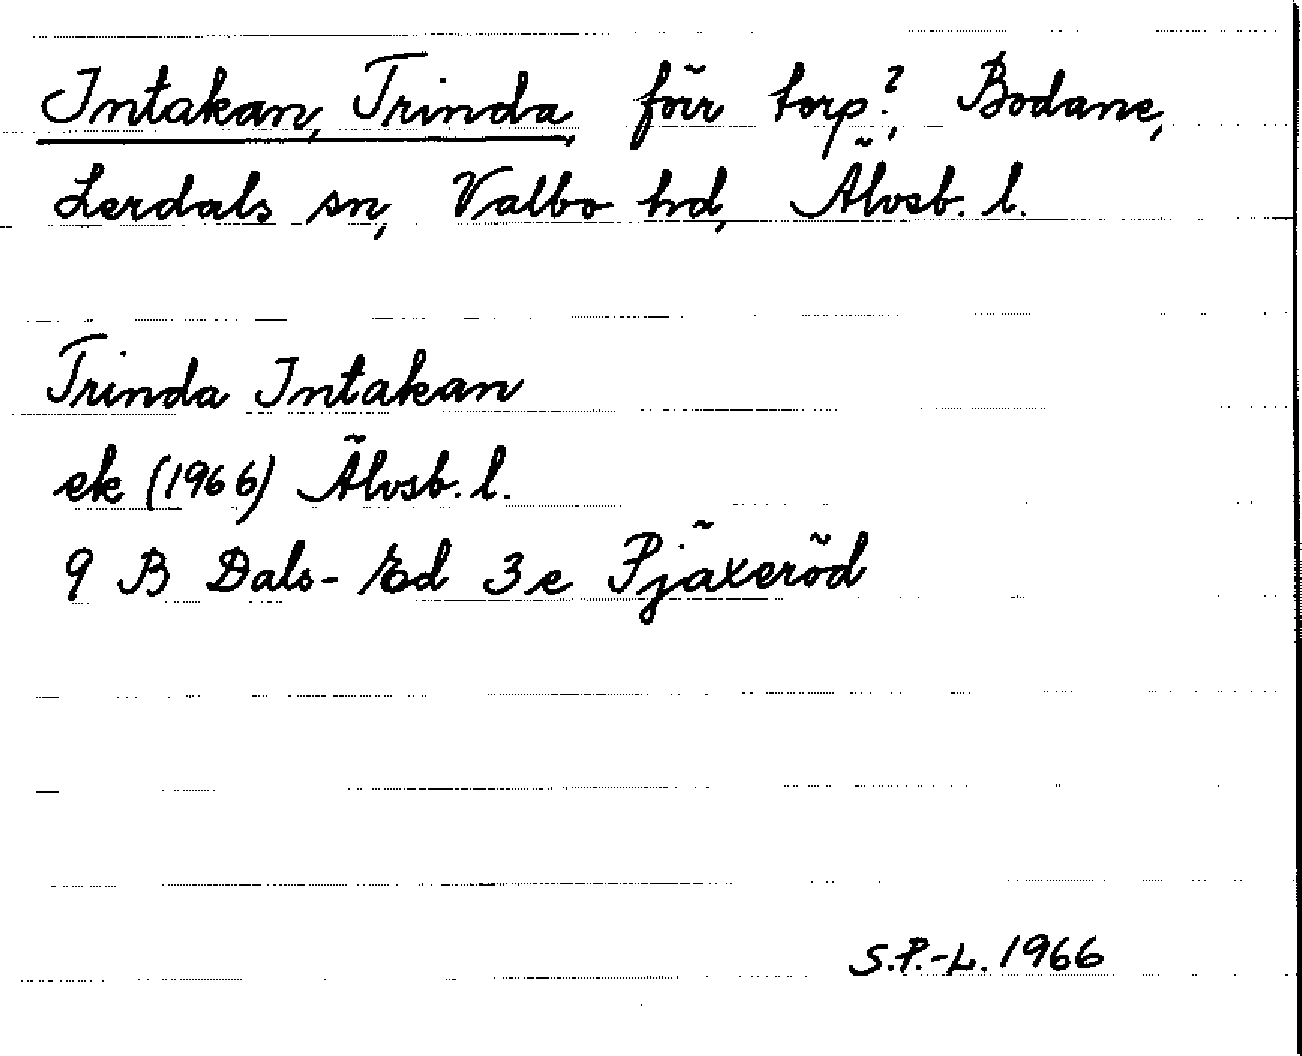 Intakan, Trinda, förr torp?, Bodane,
Lerdals sn, Valbo hd, Älvsb. l.
Trinda Intakan
ek (1966) Älvsb. l.
9 B Dals-Ed 3e Pjäxeröd
S.P.-L. 1966